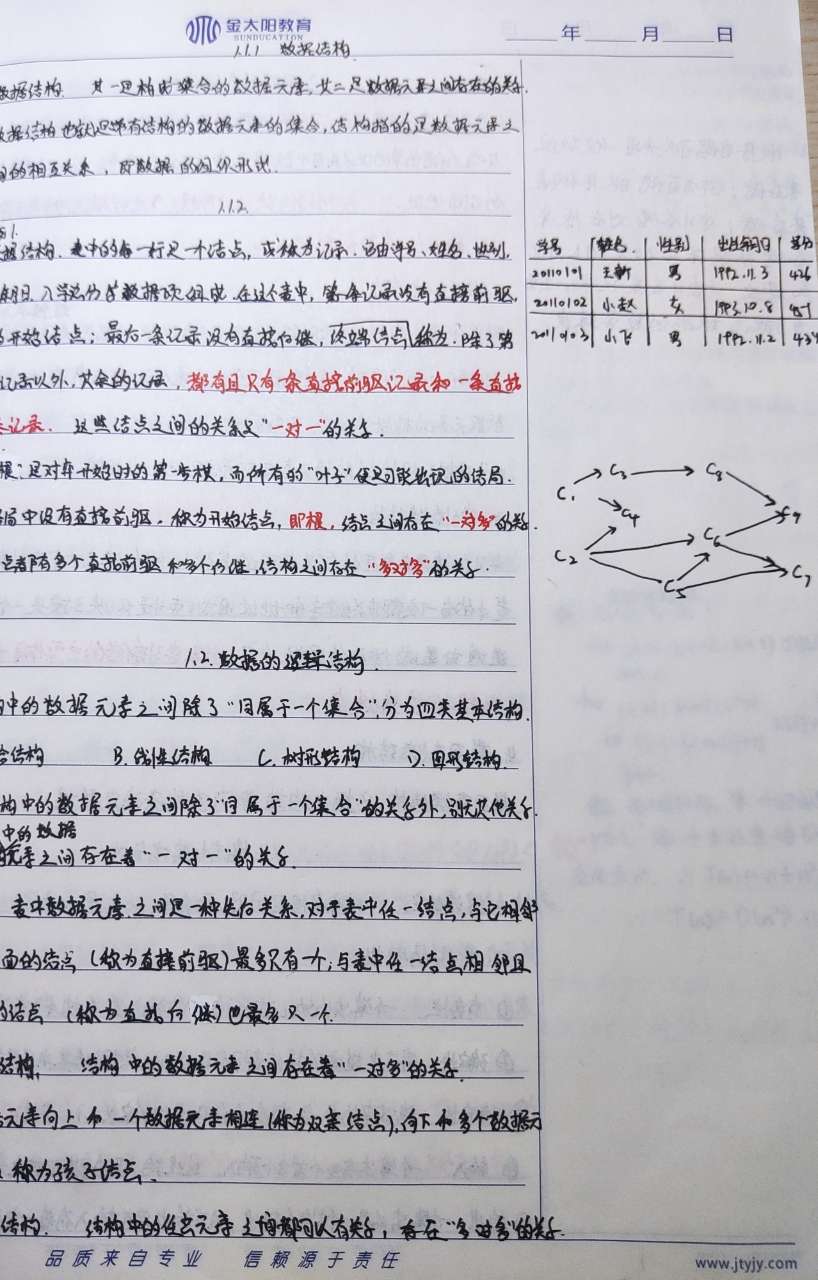 金太阳教育
SUNDUCATION
年 月 日
1.1.1 数据结构
数据结构. 其一是构成集合的数据元素,其二是数据元素之间存在的关系.
数据结构也就是带有结构的数据元素的集合,结构指的是数据元素之
间的相互关系,即数据的组织形式.
1.1.2
据结构. 表中的每一行是一个结点,或称为记录. 它由学号、姓名、性别、
期日、入学总分等数据项组成. 在这个表中,第一条记录没有直接前驱,
开始结点;最后一条记录没有直接后继,终端结点 称为. 除了第
记录以外,其余的记录,都有且只有一条直接前驱记录和一条直接
记录. 这些结点之间的关系是“一对一”的关系.
根:是对弈开始时的第一步棋,而所有的“叶子”便是可能出现的结局.
局中没有直接前驱,称为开始结点,即根,结点之间存在“一对多”的关系.
点都有多个直接前驱和多个后继,结构之间存在“多对多”的关系.
学号 姓名 性别 出生年月日
20110101 王新 男 1992.11.3 426
20110102 小赵 女 1993.10.8
20110103 小飞 男 1992.11.2
C1 C3 C8
C4 C9
C2 C6
C5 C7
1.2.数据的逻辑结构
中的数据元素之间除了“同属于一个集合”,分为四类基本结构.
合结构 B.线性结构 C.树形结构 D.图形结构
构中的数据元素之间除了“同属于一个集合”的关系外,别无其他关系.
中的数据
元素之间存在着“一对一”的关系.
表中数据元素之间是一种先后关系,对于表中任一结点,与它相邻
面的结点(称为直接前驱)最多只有一个;与表中任一结点相邻且
的结点(称为直接后继)也最多只一个.
结构. 结构中的数据元素之间存在着“一对多”的关系.
元素向上和一个数据元素相连(称为双亲结点),向下和多个数据元
称为孩子结点.
结构. 结构中的任意元素之间都可以有关系,存在“多对多”的关系.
品质来自专业 信赖源于责任
www.jtyjy.com